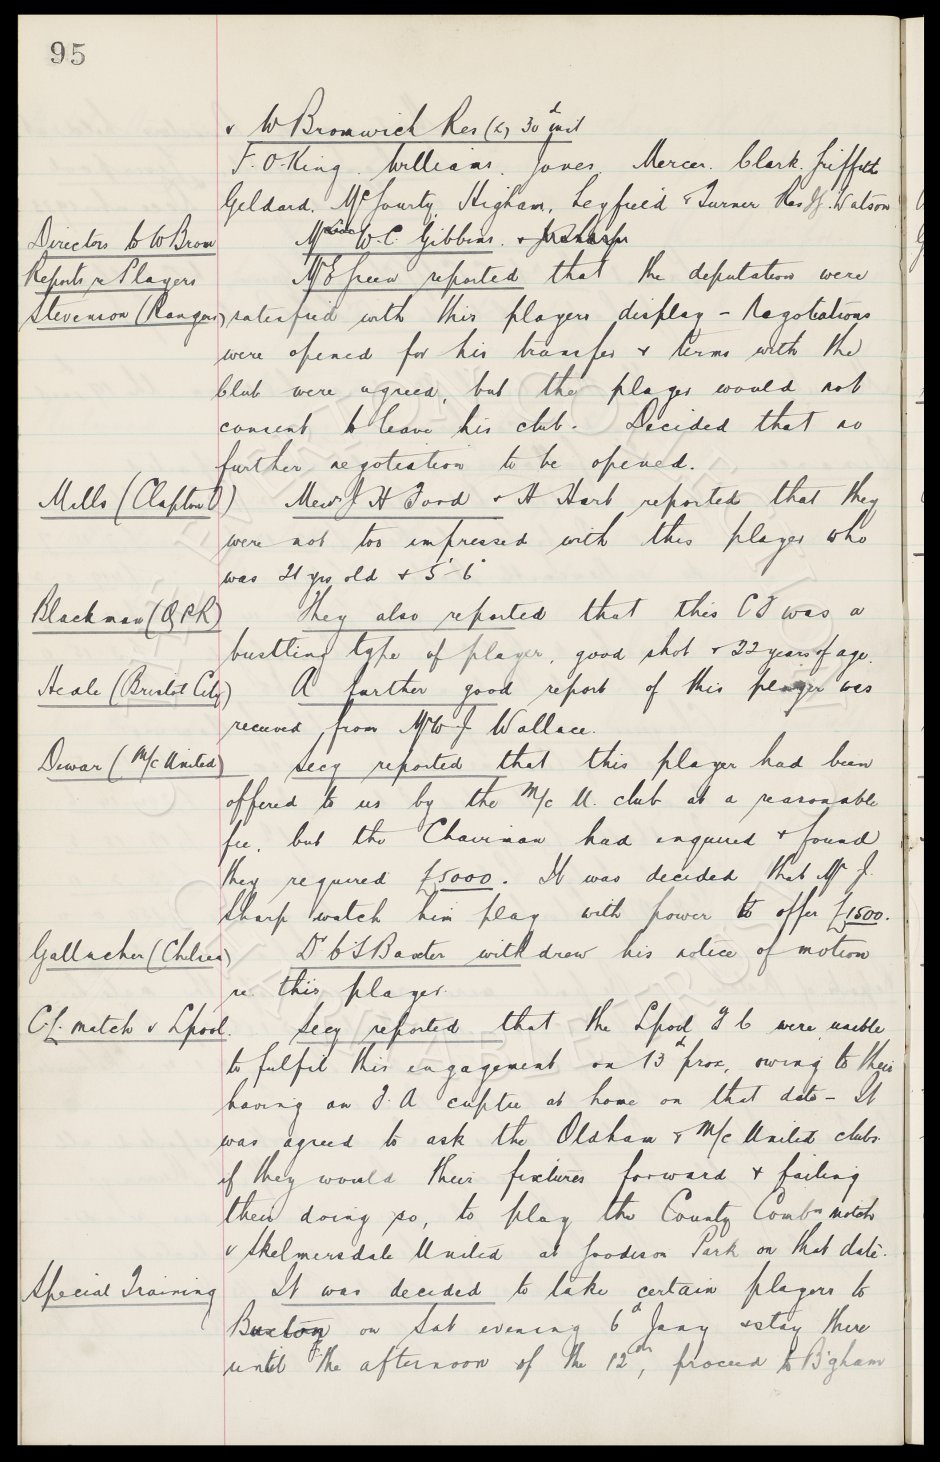 95
v W Bromwich Res (a) 30th inst
F. O. King. Williams. Jones. Mercer. Clark. Griffiths
Geldard. McGourty. Higham, Leyfield & Turner Res J. Watson
Directors to W Brom
W. C. Gibbins. &
Reports re Players
Mr E Green reported that the deputation were
Stevenson (Rangers)
satisfied with this players display - Nagotiations
were opened for his transfer & terms with the
Club were agreed, but the player would not
consent to leave his club. Decided that no
further negotiation to be opened.
Mills (Clapton O)
Messrs J H Ford & H Hart reported that they
were not too impressed with this player who
was 21 yrs old & 5' 6"
Blackman (QPR)
They also reported that this CF was a
bustling type of player, good shot & 22 years of age.
Heale (Bristol City)
A further good report of this player was
received from Mr W J Wallace.
Dewar (M/c United)
Secy reported that this player had been
offered to us by the M/c U. club at a reasonable
fee, but the Chairman had enquired & found
they required £5000. It was decided that Mr J.
Sharp watch him play with power to offer £1500.
Gallacher (Chelsea)
Dr C S Baxter withdrew his notice of motion
re. this player.
C.L. match v Lpool.
Secy reported that the Lpool F C were unable
to fulfil this engagement on 13th prox, owing to their
having an F.A cuptie at home on that date - It
was agreed to ask the Oldham & M/c United clubs
if they would their fixtures forward & failing
their doing so, to play the County Combn match
v Skelmersdale United at Goodison Park on that date.
Special Training
It was decided to take certain players to
Buxton on Sat evening 6th Jany & stay there
until the afternoon of the 12th, proceed to B'gham